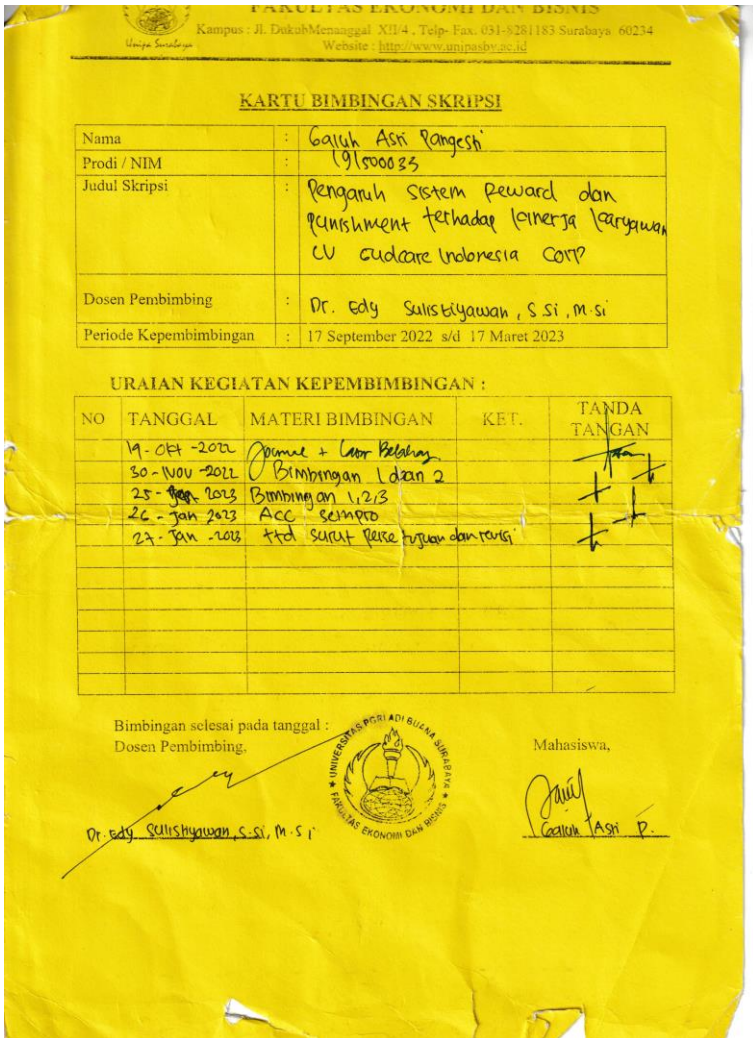 FAKULTAS EKONOMI DAN BISNIS
Kampus : Jl. DukuhMenanggal XII/4 , Telp- Fax. 031-8281183 Surabaya 60234
Unipa Surabaya
Website : http://www.unipasby.ac.id
KARTU BIMBINGAN SKRIPSI
Nama : Galuh Asri Pangesti
Prodi / NIM : 191500033
Judul Skripsi : Pengaruh Sistem Reward dan
punishment terhadap kinerja karyawan
CV Gudcare Indonesia Corp
Dosen Pembimbing : Dr. Edy Sulistiyawan, S.Si, M.si
Periode Kepembimbingan : 17 September 2022 s/d 17 Maret 2023
URAIAN KEGIATAN KEPEMBIMBINGAN :
NO TANGGAL MATERI BIMBINGAN KET. TANDA TANGAN
19 - Okt -2022 + Latar Belakang
30 - Nov -2022 Bimbingan 1 dan 2
25 - 2023 Bimbingan 1,2,3
26 - Jan 2023 Acc sempro
27 - Jan -2023 ttd surat persetujuan dan revisi
Bimbingan selesai pada tanggal :
Dosen Pembimbing,
Mahasiswa,
UNIVERSITAS PGRI ADI BUANA SURABAYA
FAKULTAS EKONOMI DAN BISNIS
Dr. Edy Sulistiyawan, S.si, M.si
Galuh Asri P.